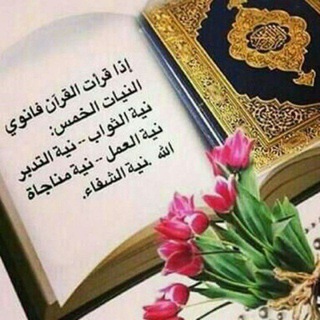 إذا قرأت القرآن فانوي
النيات الخمس:
نية الثواب -- نية التدبر
نية العمل -- نية مناجاة
الله .نية الشفاء.